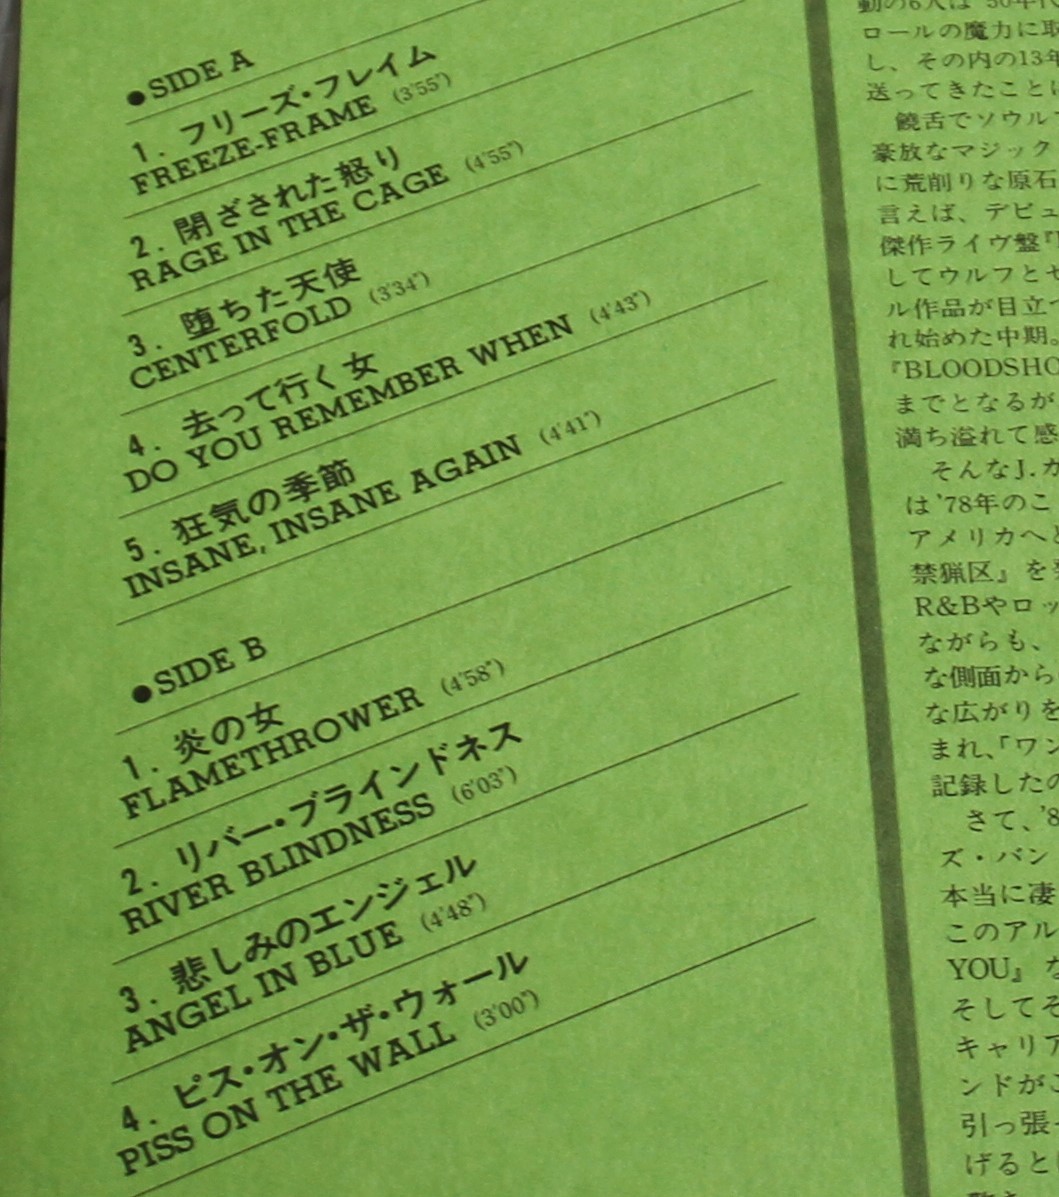 ●SIDE A
1. フリーズ・フレイム
FREEZE-FRAME (3'55")
2. 閉ざされた怒り
RAGE IN THE CAGE (4'55")
3. 堕ちた天使
CENTERFOLD (3'34")
4. 去って行く女
DO YOU REMEMBER WHEN (4'43")
5. 狂気の季節
INSANE, INSANE AGAIN (4'41")
●SIDE B
1. 炎の女
FLAMETHROWER (4'58")
2. リバー・ブラインドネス
RIVER BLINDNESS (6'03")
3. 悲しみのエンジェル
ANGEL IN BLUE (4'48")
4. ピス・オン・ザ・ウォール
PISS ON THE WALL (3'00")
動の6人は'50年代
ロールの魔力に取
し、その内の13年
送ってきたことに
饒舌でソウルフ
豪放なマジック
に荒削りな原石
言えば、デビュ
傑作ライヴ盤『
してウルフとセ
ル作品が目立っ
れ始めた中期。
『BLOODSHO
までとなるが
満ち溢れて感
そんなJ.ガ
は'78年のこ
アメリカへと
禁猟区』を
R&Bやロッ
ながらも、
な側面から
な広がりを
まれ、「ワン
記録したの
さて、'8
ズ・バン
本当に凄
このアル
YOU』な
そしてそ
キャリア
ンドがこ
引っ張っ
げると